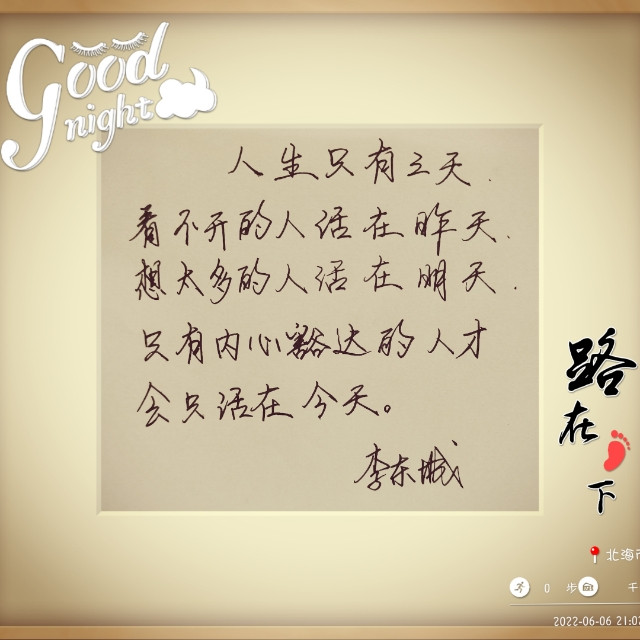 Good
night
人生只有三天.
看不开的人活在昨天.
想太多的人活在明天.
只有内心豁达的人才
会只活在今天。
李东城
路
在
下
北海市
0 步
千
2022-06-06 21:02